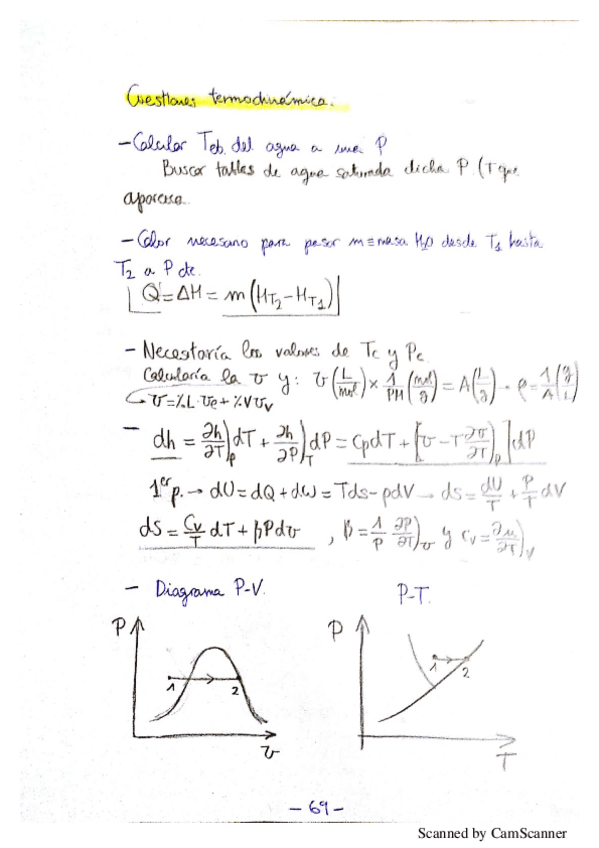 Cuestiones termodinámica:
- Calcular Teb. del agua a una P
Buscar tablas de agua saturada dicha P. (T que
aparezca.
- Calor necesario para pasar m≡masa H₂O desde T₁ hasta
T₂ a P cte.
Q = ΔH = m(H_T₂ - H_T₁)
- Necesitaría los valores de Tc y Pc.
Calcularía la v y: v(L/mol) × 1/PM (mol/g) = A(L/g) → ρ = 1/A (g/L)
v = %L·Ve + %V Vv
- dh = ∂h/∂T)p dT + ∂h/∂P)T dP = Cp dT + [v - T ∂v/∂T)p] dP
1er p. → dU = dQ + dW = Tds - pdV → ds = dU/T + P/T dV
ds = Cv/T dT + βPdv , β = 1/P ∂P/∂T)v y cv = ∂u/∂T)v
- Diagrama P-V. P-T.
P P
1 2 1 2
v T
- 69 -
Scanned by CamScanner